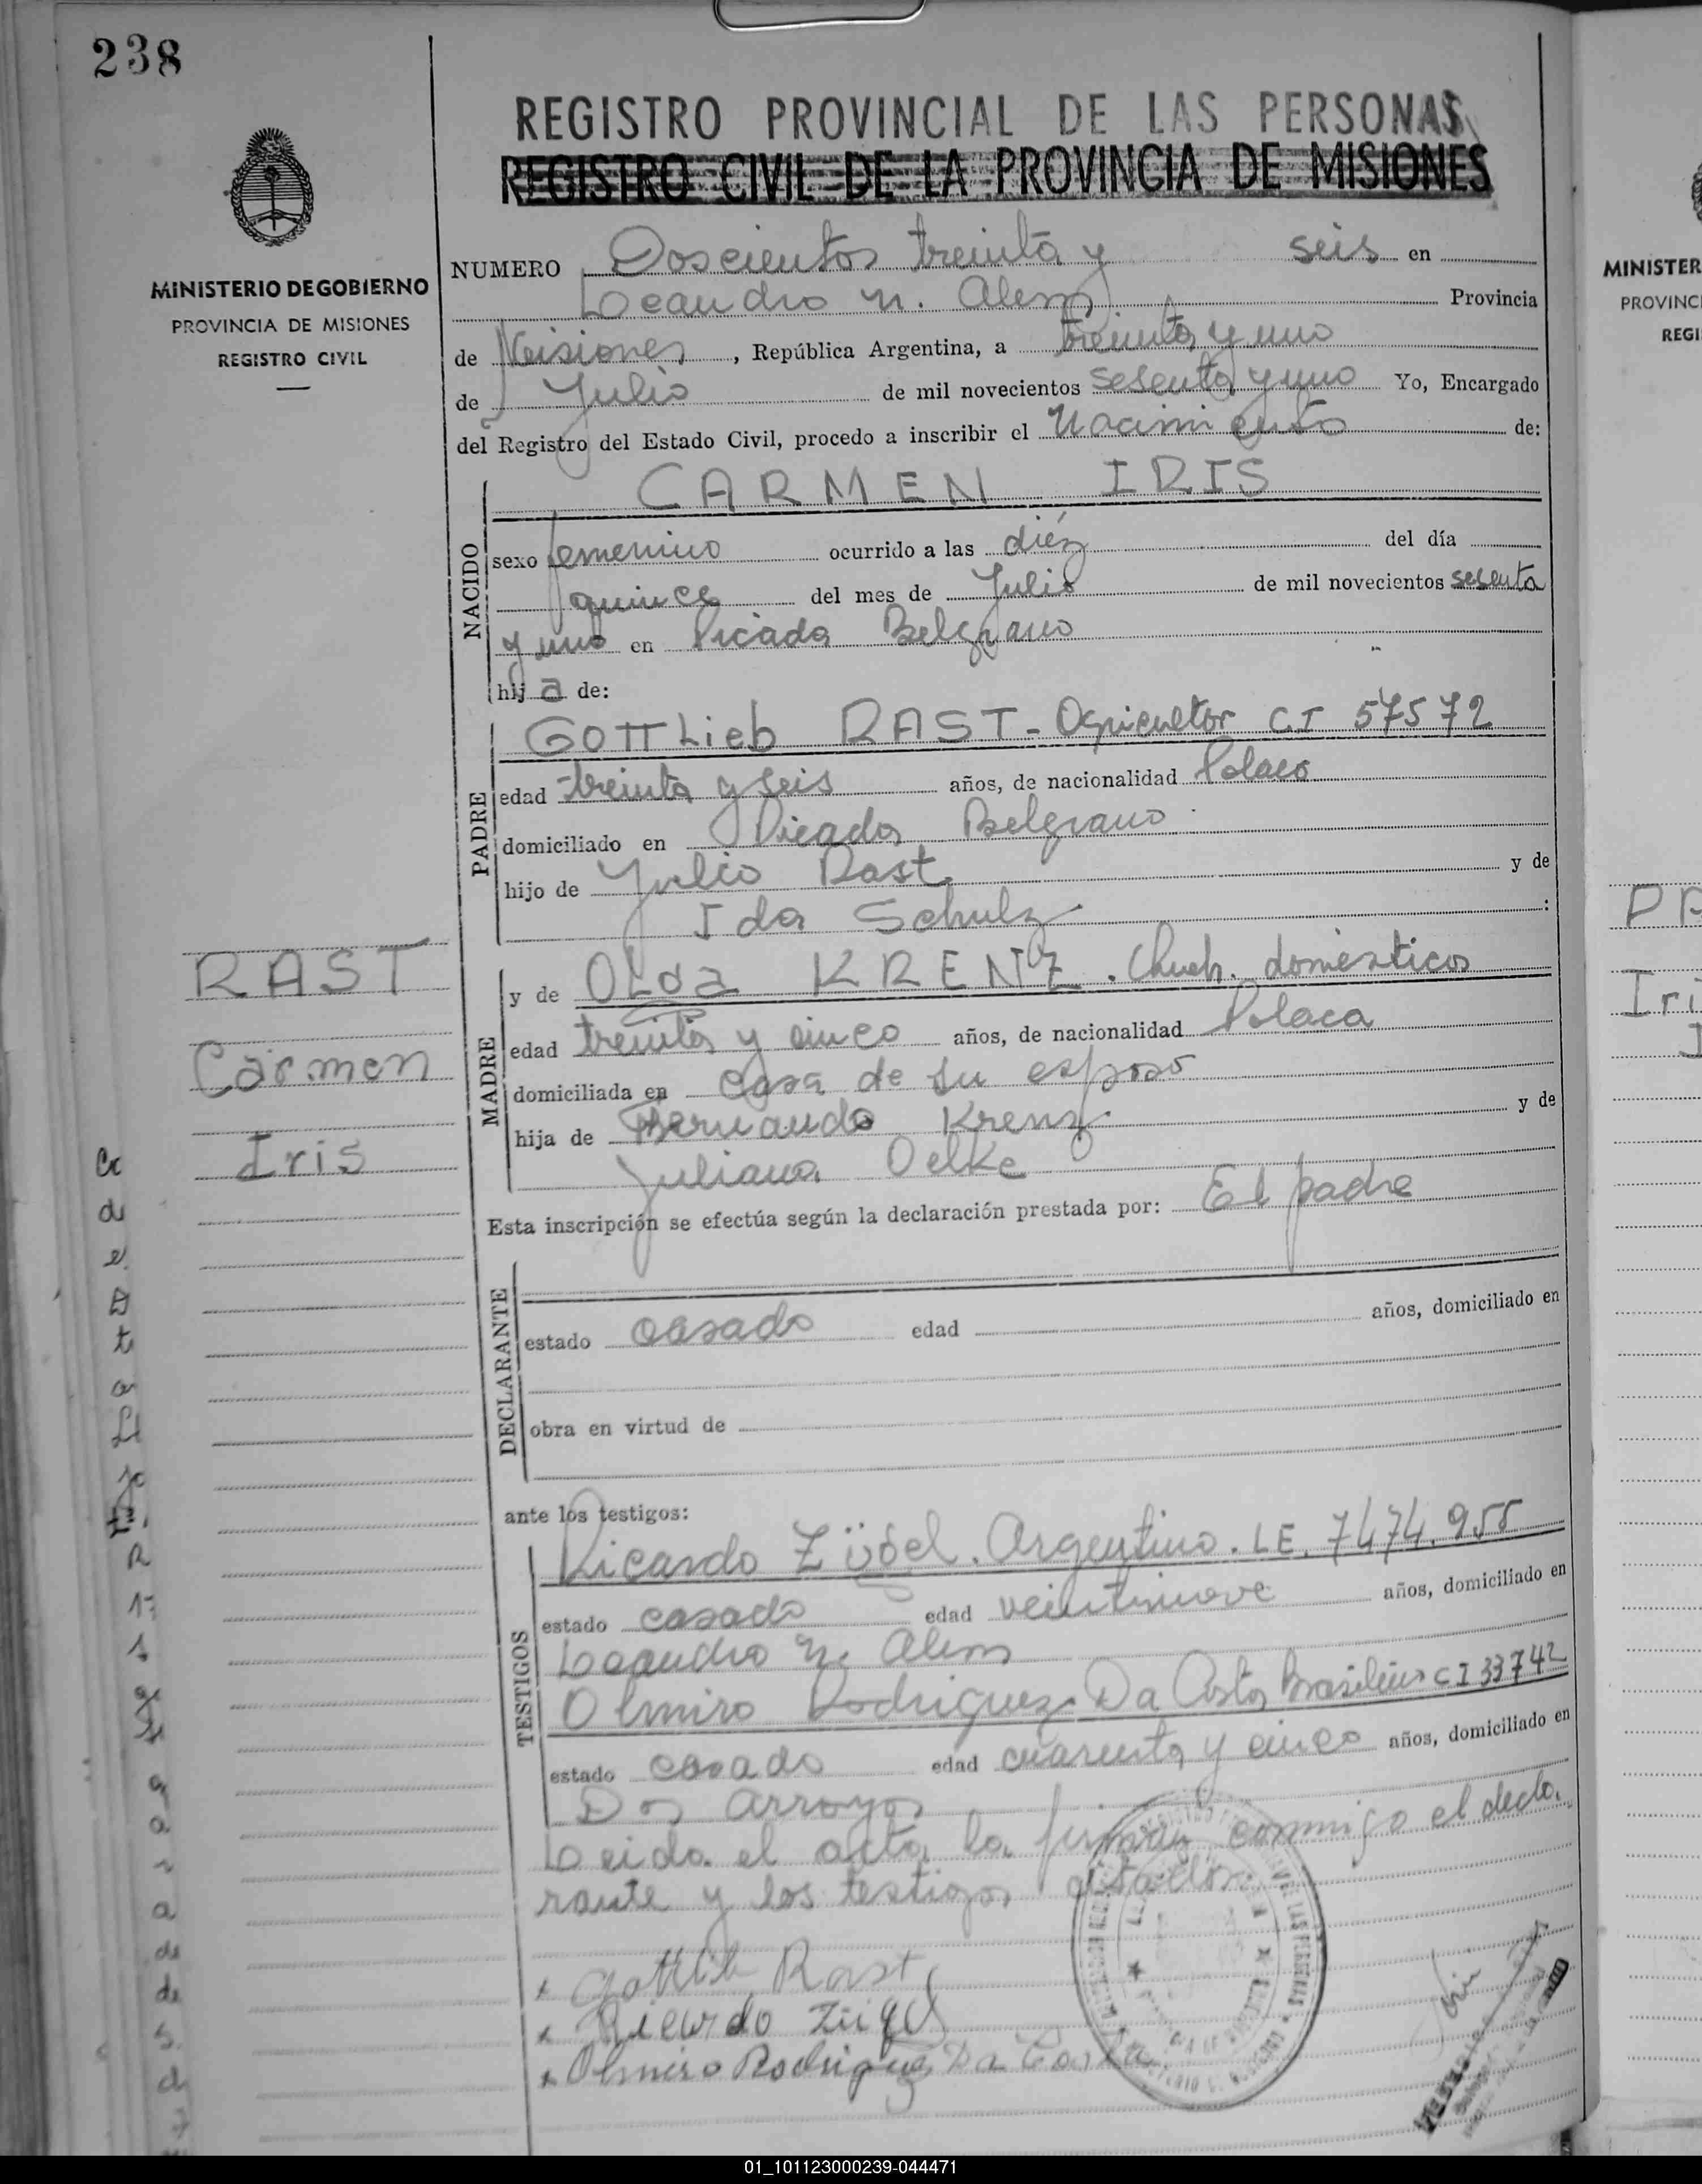 238
REGISTRO PROVINCIAL DE LAS PERSONAS
REGISTRO CIVIL DE LA PROVINCIA DE MISIONES
MINISTERIO DE GOBIERNO
PROVINCIA DE MISIONES
REGISTRO CIVIL
NUMERO Doscientos treinta y seis en
Leandro N. Alem Provincia
de Misiones, República Argentina, a treinta y uno
de Julio de mil novecientos sesenta y uno Yo, Encargado
del Registro del Estado Civil, procedo a inscribir el Nacimiento de:
NACIDO
CARMEN IRIS
sexo femenino ocurrido a las diéz del día
quince del mes de Julio de mil novecientos sesenta
y uno en Picada Belgrano
hija de:
PADRE
GOTTLieb RAST - Agricultor CI 57572
edad treinta y seis años, de nacionalidad Polaco
domiciliado en Picada Belgrano
hijo de Julio Rast y de
Ida Schulz :
MADRE
y de OLda KRENZ. Queh. domésticos
edad treinta y cinco años, de nacionalidad Polaca
domiciliada en casa de su esposo
hija de Hernando Krenz y de
Juliana Oelke
Esta inscripción se efectúa según la declaración prestada por: El padre
RAST
Carmen
Iris
DECLARANTE
estado casado edad años, domiciliado en
obra en virtud de
ante los testigos:
TESTIGOS
Ricardo Argentino. LE. 7474.955
estado casado edad veintinueve años, domiciliado en
Leandro N. Alem
Olmiro Rodriguez Da Costa Brasilero CI 33742
estado casado edad cuarenta y cinco años, domiciliado en
Dos Arroyos
Leida el acta la firman conmigo el decla.
rante y los testigos citados
Gottlib Rast
Ricardo
Olmiro Rodriguez Da Costa
MINISTER
PROVINC
REGI
Iri
01_101123000239-044471